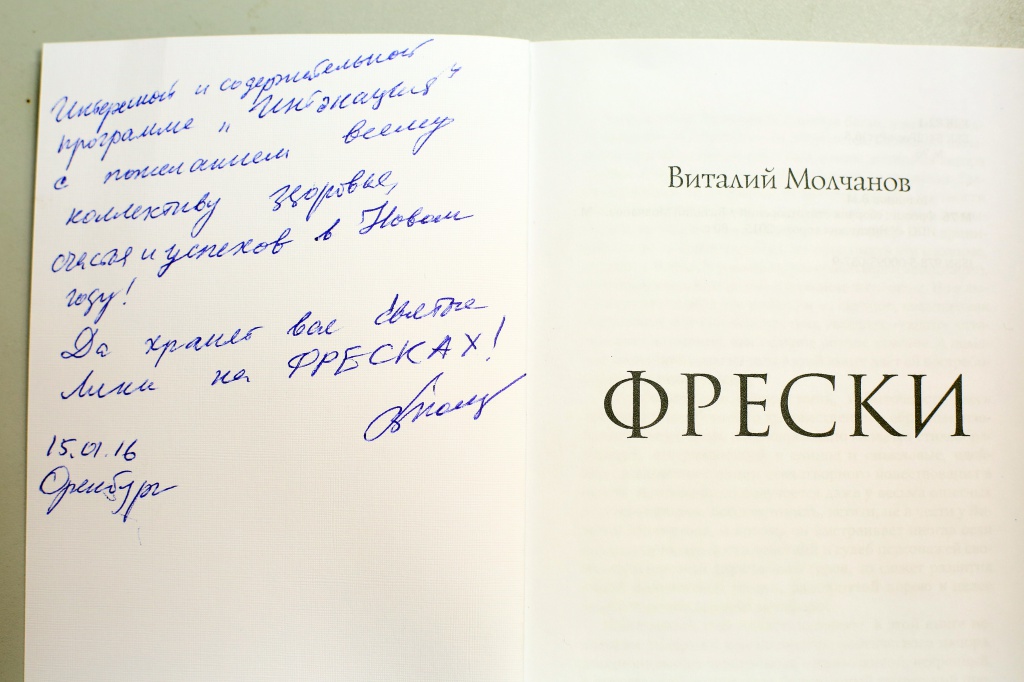 Интересной и содержательной
программе „Интонация"
с пожеланием всему
коллективу здоровья,
счастья и успехов в Новом
году!
Да хранят вас святые
лики на ФРЕСКАХ!
15.01.16
Оренбург
Виталий Молчанов
ФРЕСКИ